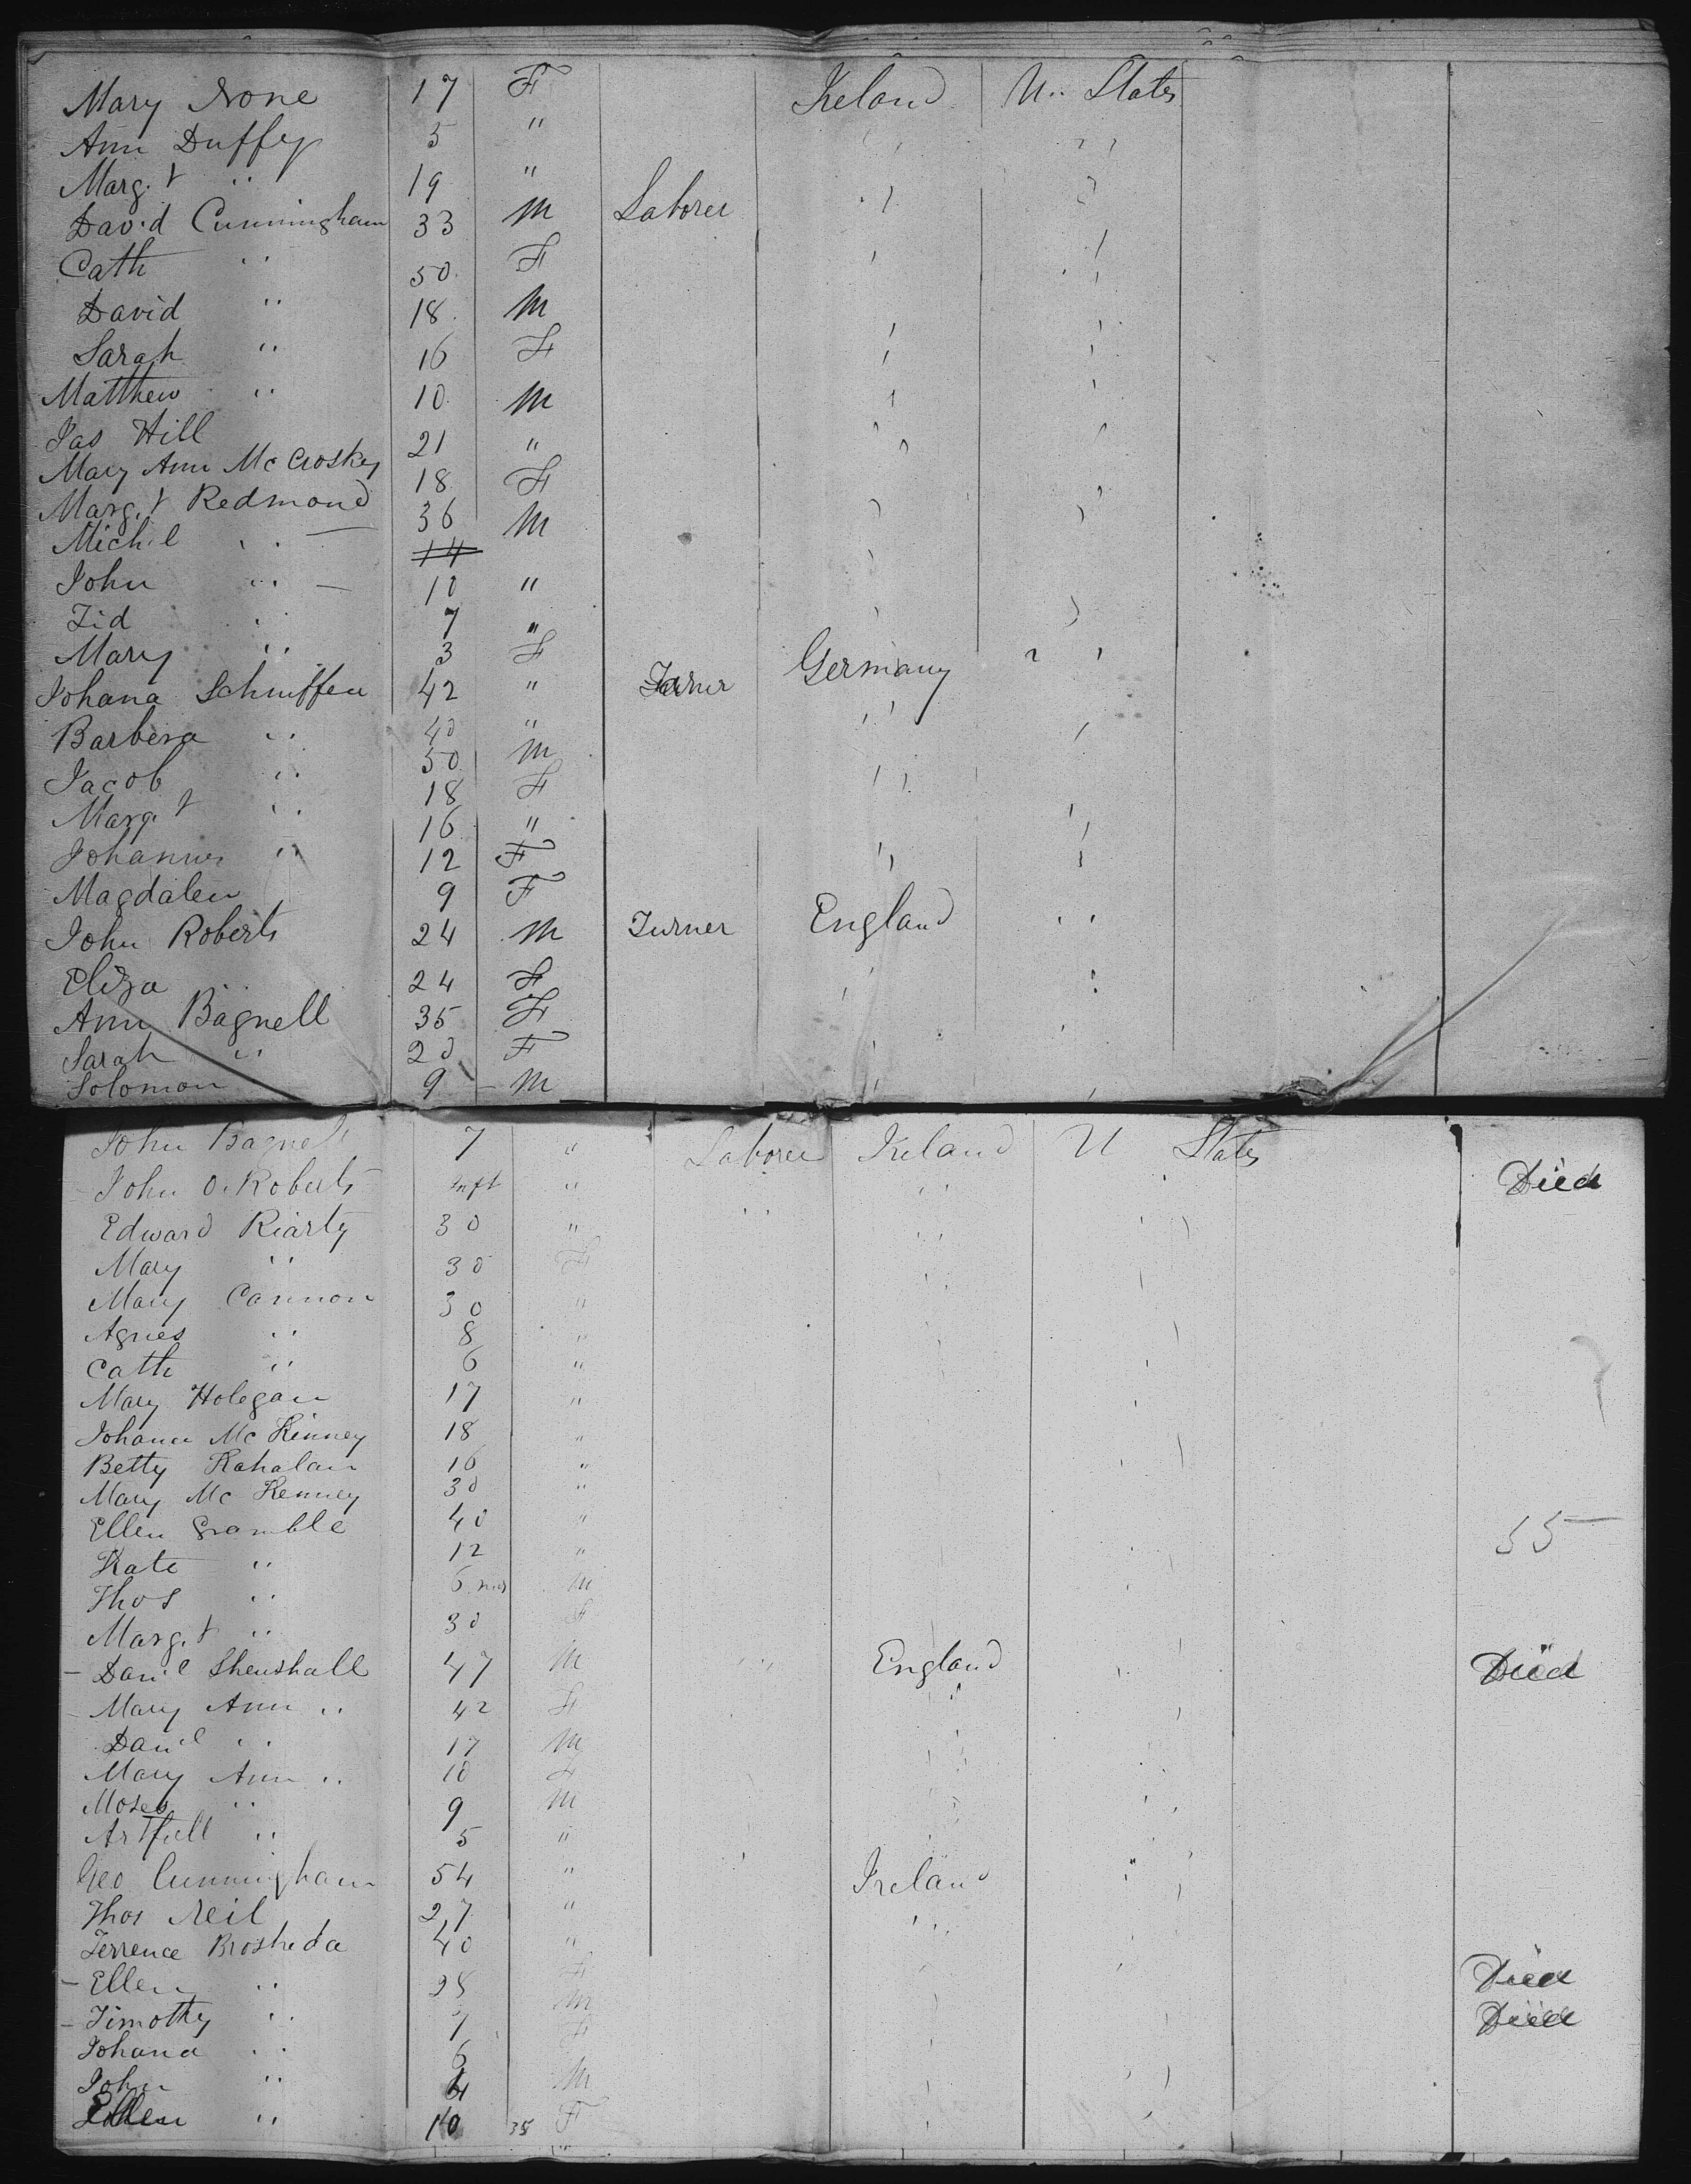 Mary None 17 F Ireland U.. States
Ann Duffey 5 "
Marg.t " 19 "
David Cunningham 33 M Laborer
Cath " 50 F
David " 18 M
Sarah " 16 F
Matthew " 10 M
Jas Hill 21 "
Mary Ann Mc Croskey 18 F
Marg.t Redmond 36 M
Mich.l " 14
John " 10 "
Tid " 7 "
Mary " 3 F
Johana Schniffen 42 " Germany
Barbera " 40 "
Jacob " 50 M
Marg.t " 18 F
Johannes " 16 "
Magdalen 12 F
9 F
John Roberts 24 M Turner England
Eliza " 24 F
Ann Bagnell 35 F
Sarah " 20 F
Solomon 9 M
John Bagnell 7 " Laborer Ireland U States
John O. Roberts Inft " Died
Edward Riarty 30 "
Mary " 30 F
Mary Cannon 30 "
Agnes " 8 "
Cath " 6 "
Mary Holegan 17 "
Johana Mc Kinney 18 "
Betty Kahalan 16 "
Mary Mc Kenney 30 "
Ellen Gramble 40 " 55
Kate " 12 "
Thos " 6 mos M
Marg.t " 30 F
Dan'l Shenshall 47 M England Died
Mary Ann " 42 F
Dan'l " 17 M
Mary Ann " 10 F
Moses " 9 M
Artfull " 5 "
Geo Cunningham 54 " Ireland
Thos Neil 27 "
Terrence Brosheda 40 "
Ellen " 28 F Died
Timothy " 7 M Died
Johana " 6 F
John " 4 M
Ellen " 10 35 F